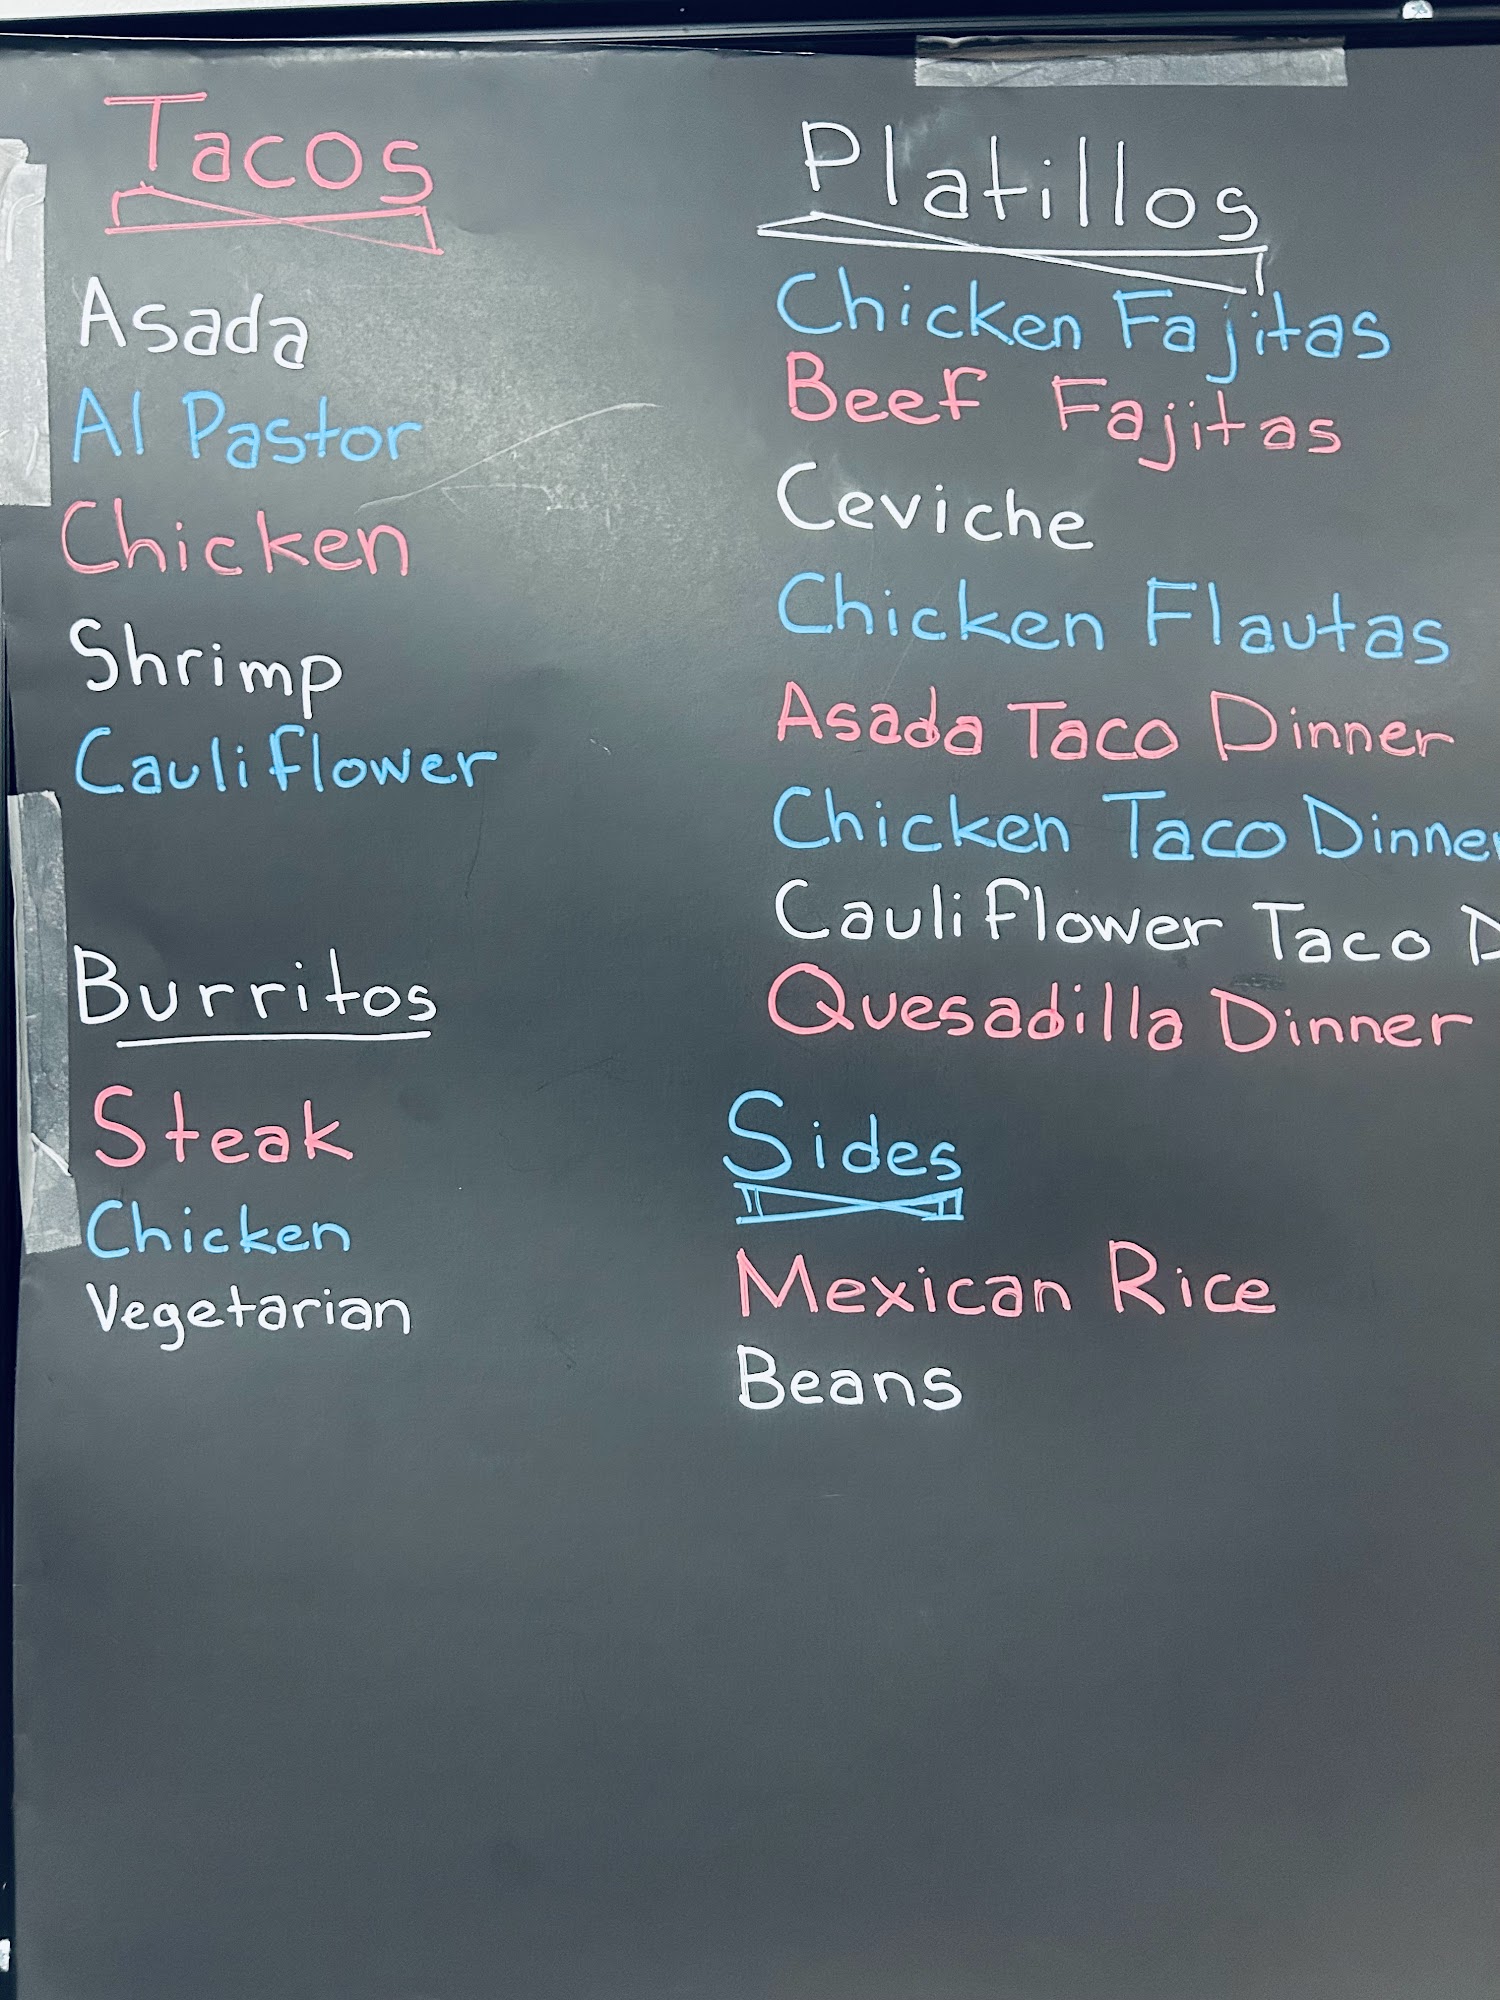 Tacos
Asada
Al Pastor
Chicken
Shrimp
Cauliflower
Burritos
Steak
Chicken
Vegetarian
Platillos
Chicken Fajitas
Beef Fajitas
Ceviche
Chicken Flautas
Asada Taco Dinner
Chicken Taco Dinner
Cauliflower Taco D
Quesadilla Dinner
Sides
Mexican Rice
Beans